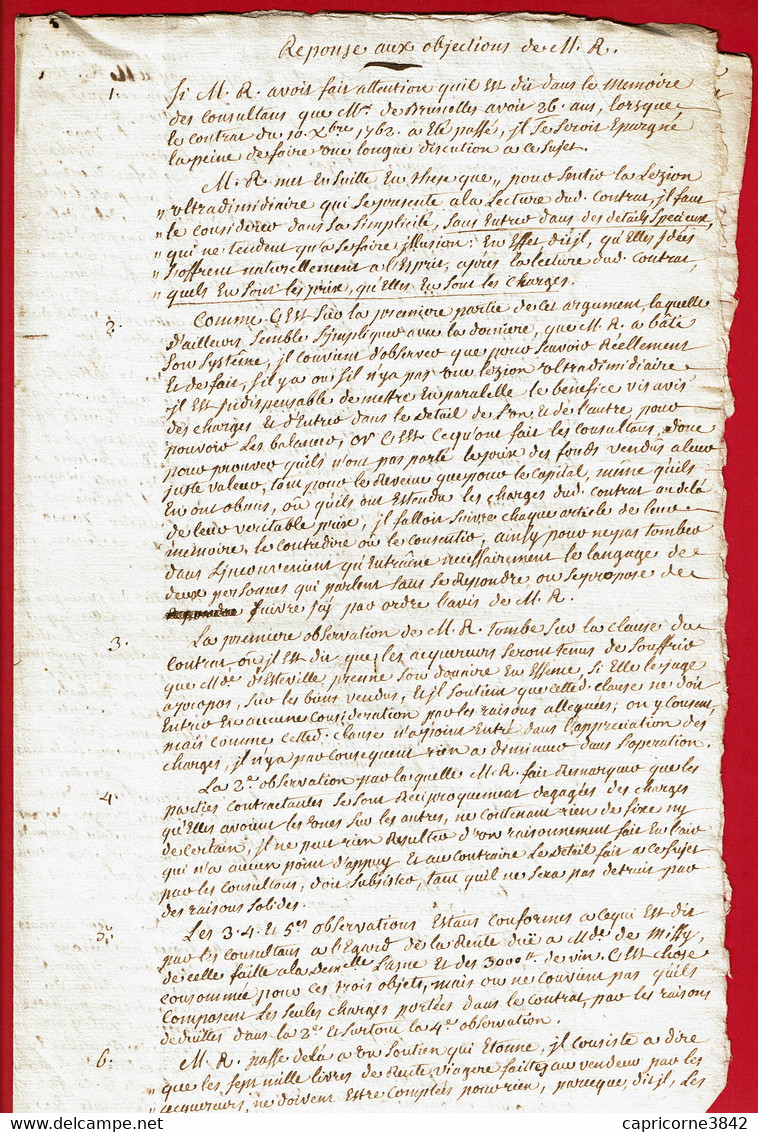 Reponse aux objections de M. R.
1. Si M. R. avoit fait attention quil Est dit dans le Memoire
des Consultans que Mr. de Brunolles avoit 26. ans, lorsque
le contrat du 10. Xbre 1762. a Eté passé, jl Se Seroit Epargné
la peine de faire une longue discution a ce Sujet.
M. R. met Ensuitte En these que „ pour Sentir la Lezion
„ ultradimidiaire qui se presente a la Lecture dud. Contrat, jl faut
„ le considerer dans sa Simplicité, Sans Entrer dans des details Specieux,
„ qui ne tendent qu'a se faire jllusion: En Effet dit jl, qu'Elles jdées
„ S'offrent naturellement a l'Esprit, après la lecture dud. Contrat,
„ quels En Sont les prix, qu'Elles En Sont les Charges.
2. Comme C'Est Sur la premiere partie de Cet argument, la quelle
d'ailleurs Semble S'jmpliquer avec la derniere, que M. R. a bâti
Son Systême, jl convient d'observer que pour Scavoir Réellement
Et de fait, S'il y a ou S'il n'y a pas une lezion ultradimidiaire
jl Est jndispensable de mettre En paralelle le bénéfice vis avis
des charges Et d'Entrer dans le Detail de l'un, Et de l'autre, pour
pouvoir Les balancer, or C'Est Cequ'ont fait les Consultans, donc
pour prouver quils n'ont pas porté le prix des fonds vendûs a leur
juste valeur, tant pour le Revenu que pour le Capital, meme quils
En ont obmis, ou qu'ils ont Estendu les charges dud. Contrat au delà
de leur veritable prix, jl falloit Suivre chaque article de leur
memoire, le Contredire ou le Consentir, ainsy pour ne pas tomber
dans L'jnconvenient qu'Entraine necessairement le langage de
deux personnes qui parlent Sans Se Repondre on Se propose de
Suivre par ordre l'avis de M. R.
3. La premiere observation de M. R. Tombe Sur la clause du
Contrat, ou jl Est dit que les acquereurs Seront tenus de Souffrir
que Mde. d'Esteville prenne Son douaire En Essence, Si Elle le juge
apropos, Sur les biens vendus, Et jl Soutient que cetted. clause ne doit
Entrer En aucune Consideration par les raisons alleguées; on y Consent,
mais Comme cetted. Clause n'a point Entré dans l'appreciation des
charges, jl n'y a par Consequent rien a diminuer dans l'operation.
4. La 2e. observation par la quelle M. R. fait Remarquer que les
parties Contractantes Se Sont Reciproquement dégagées des charges
qu'Elles avoient les unes Sur les autres, ne contenant rien de fixe ny
de Certain, jl ne peut rien Resulter d'un raisonnement fait En l'air
qui n'a aucun point d'appuy Et au Contraire Le detail fait a ce Sujet
par les Consultans, doit Subsister, tant qu'il ne Sera pas detruit par
des raisons Solides.
5. Les 3. 4. Et 5es. observations Estans Conformes a Cequi Est dit
par les Consultans a l'Egard de la Rente duë a Mde. de Milly,
de celle faitte a la Demelle. Lasne Et des 3000tt. de vin, C'Est chose
consommée pour ces trois objets, mais on ne Convient pas qu'ils
Composent Les Seules charges portées dans le Contrat, par les raisons
dedûittes dans la 2e. Et Surtout la 4e. observation.
6. M. R. passe delà a un Soutien qui Etonne, jl consiste a dire
„ que les Sept mille livres de Rente viagere faittes au vendeur par les
„ acquereurs, ne doivent Etre Comptées pour rien, parceque, dit jl, Les
capricorne3842